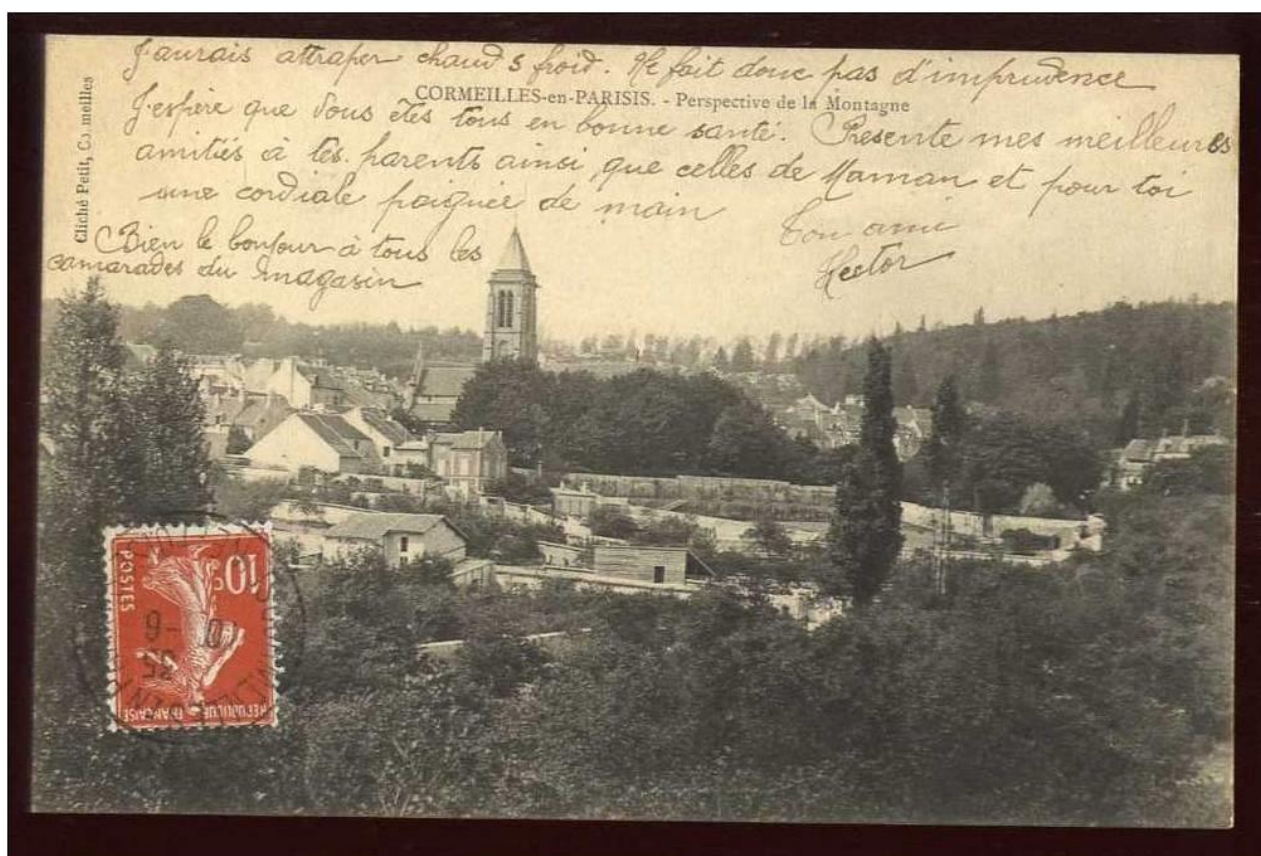 J'aurais attraper chaud & froid. Ne fait donc pas d'imprudence
CORMEILLES-en-PARISIS. - Perspective de la Montagne
J'espère que vous êtes tous en bonne santé. Présente mes meilleures
amitiés à tes parents ainsi que celles de Maman et pour toi
une cordiale poignée de main
Ton ami
Hector
Bien le bonjour à tous les
camarades du magasin
Cliché Petit, Co.meilles
10c
POSTES
REPUBLIQUE FRANÇAISE